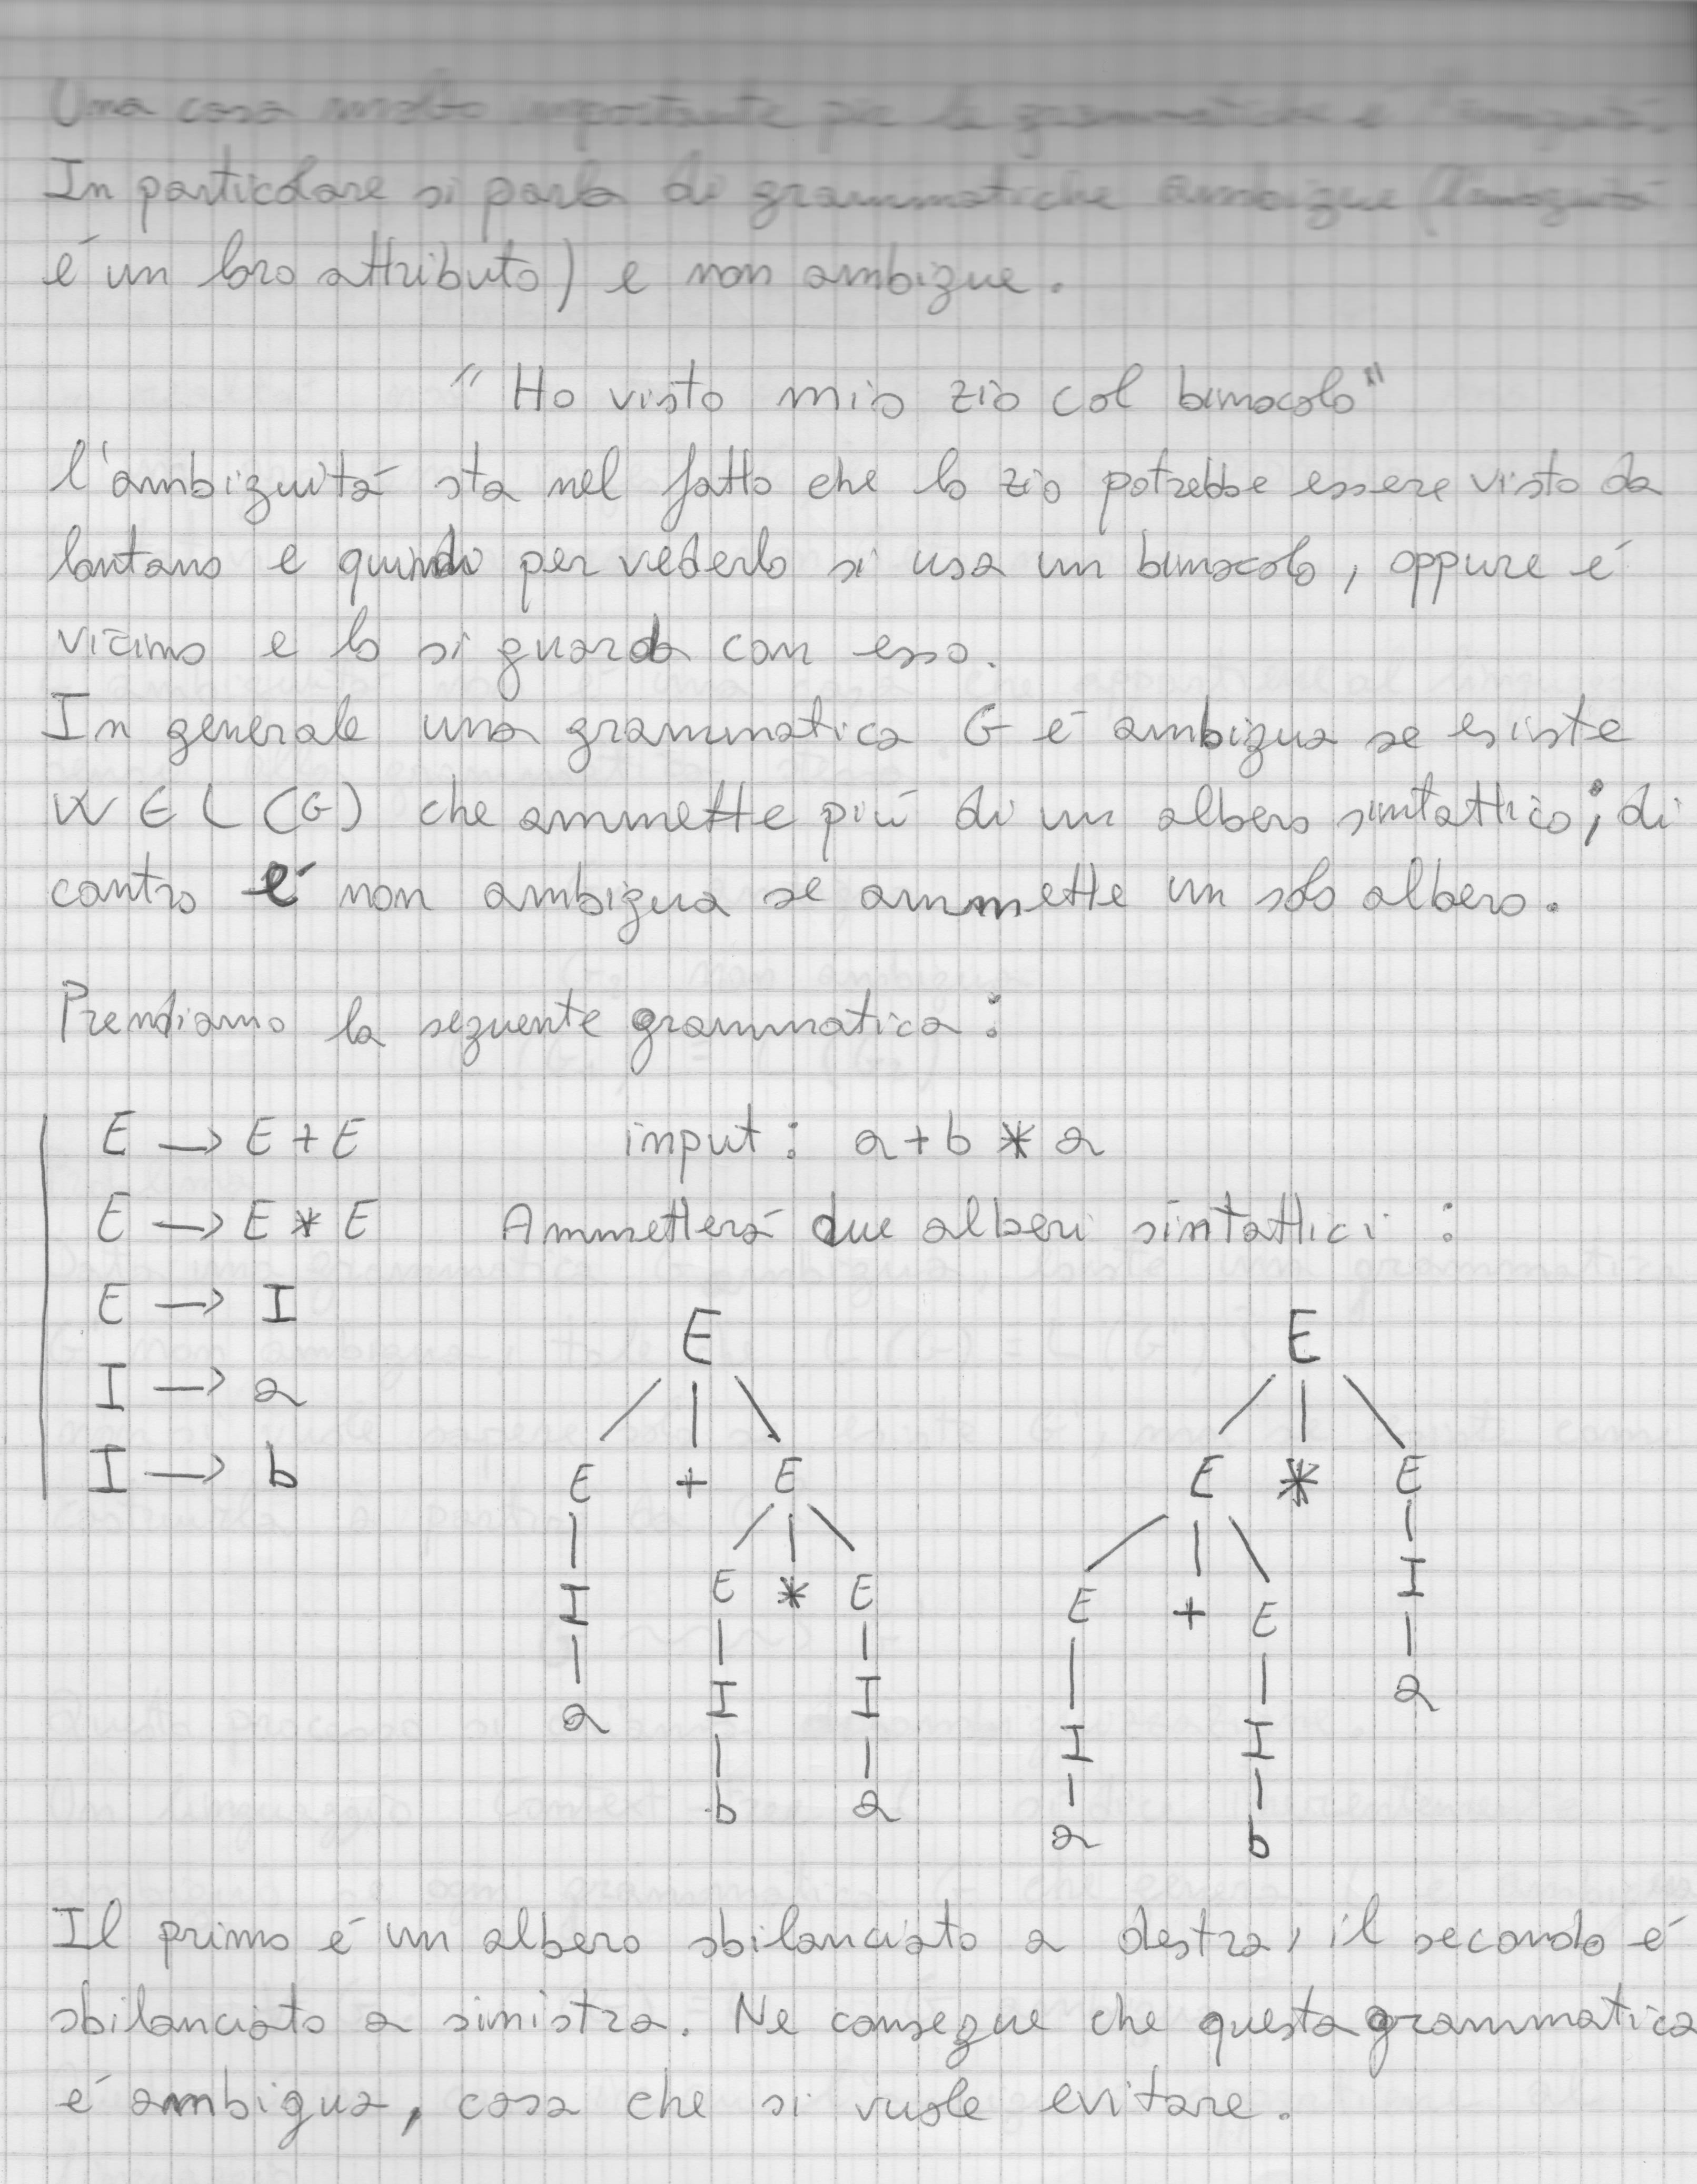 Una cosa molto importante per le grammatiche è l'
In particolare si parla di grammatiche ambigue (l'ambiguità
é un loro attributo) e non ambigue.
"Ho visto mio zio col binocolo"
l'ambiguitá sta nel fatto che lo zio potrebbe essere visto da
lontano e quindi per vederlo si usa un binocolo, oppure é
vicino e lo si guarda con esso.
In generale una grammatica G é ambigua se esiste
W ∈ L(G) che ammette piú di un albero sintattico; di
contro é non ambigua se ammette un solo albero.
Prendiamo la seguente grammatica:
E → E + E input: a + b * a
E → E * E Ammetterá due alberi sintattici:
E → I
I → a
I → b
E
E + E
I E * E
a I I
b a
E
E * E
E + E I
I I a
a b
Il primo é un albero sbilanciato a destra, il secondo é
sbilanciato a sinistra. Ne consegue che questa grammatica
é ambigua, cosa che si vuole evitare.